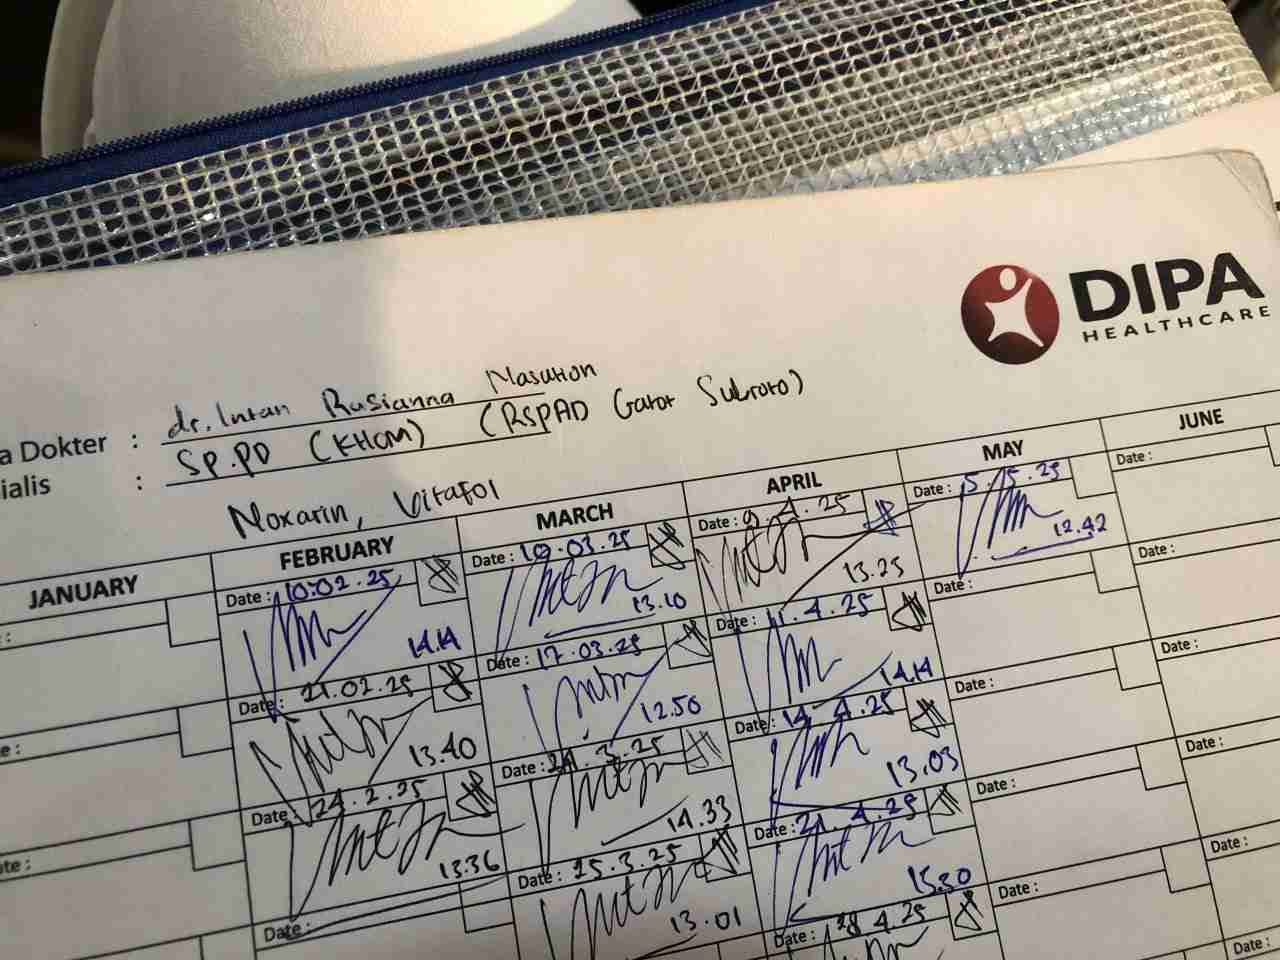 DIPA
HEALTHCARE
a Dokter : dr. Intan Rusianna Nasution
ialis : Sp.PD (KHOM) (RSPAD Gatot Subroto)
Noxarin, Vitafol
JANUARY
FEBRUARY
MARCH
APRIL
MAY
JUNE
Date : 10.02.25
14.14
Date : 21.02.25
13.40
Date : 24.2.25
13.36
Date :
Date : 10.03.25
13.10
Date : 17.03.25
12.50
Date : 24.3.25
14.33
Date : 25.3.25
13.01
Date : 9.4.25
13.25
Date : 11.4.25
14.14
Date : 14.4.25
13.03
Date : 21.4.25
15.30
Date : 28.4.25
Date : 5.5.25
12.42
Date :
Date :
Date :
Date :
Date :
Date :
Date :
Date :
Date :
Date :